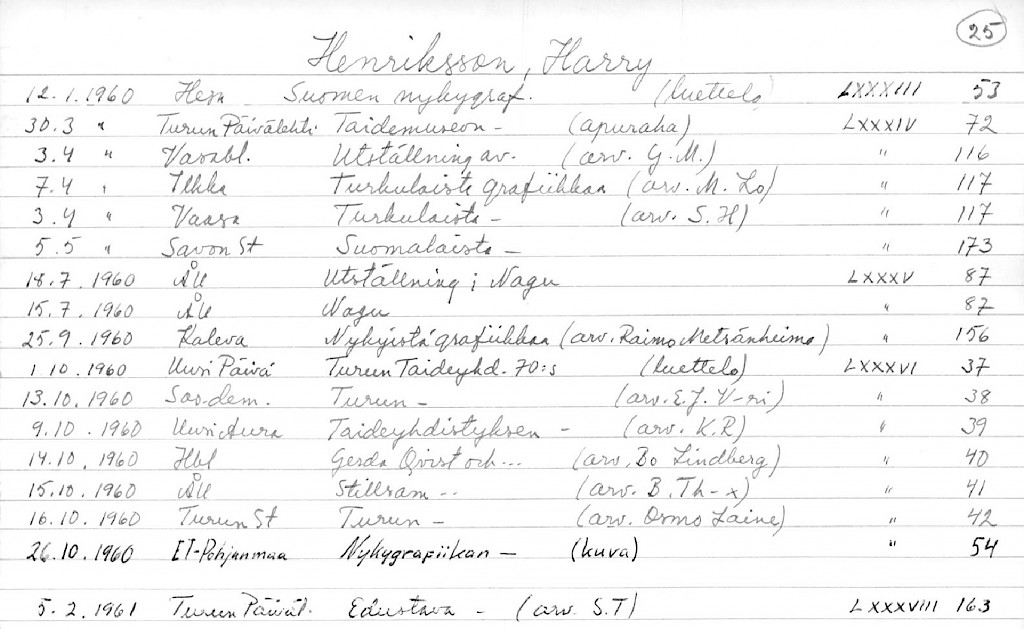 25
Henriksson, Harry
12.1.1960 Hesa Suomen nykygraf. (luettelo) LXXXIII 53
30.3 " Turun Päivälehti Taidemuseon - (apuraha) LXXXIV 72
3.4 " Vasabl. Utställning av. (arv. G.M.) " 116
7.4 " Ilkka Turkulaista grafiikkaa (arv. M. Lo) " 117
3.4 " Vaasa Turkulaista - (arv. S.H) " 117
5.5 " Savon St Suomalaista - " 173
18.7.1960 ÅU Utställning i Nagu LXXXV 87
15.7.1960 ÅU Nagu " 87
25.9.1960 Kaleva Nykyistä grafiikkaa (arv. Raimo Metsänheimo) " 156
1.10.1960 Uusi Päivä Turun Taideyhd. 70:s (luettelo) LXXXVI 37
13.10.1960 Sos.dem. Turun - (arv. E.J. V-ri) " 38
9.10.1960 Uusi Aura Taideyhdistyksen - (arv. K.R) " 39
14.10.1960 Hbl Gerda Qvist och... (arv. Bo Lindberg) " 40
15.10.1960 ÅU Stillsam -- (arv. B.Th-x) " 41
16.10.1960 Turun St Turun - (arv. Osmo Laine) " 42
26.10.1960 ET-Pohjanmaa Nykygrafiikan - (kuva) " 54
5.2.1961 Turun Päiväl. Edustava - (arv. S.T) LXXXVIII 163